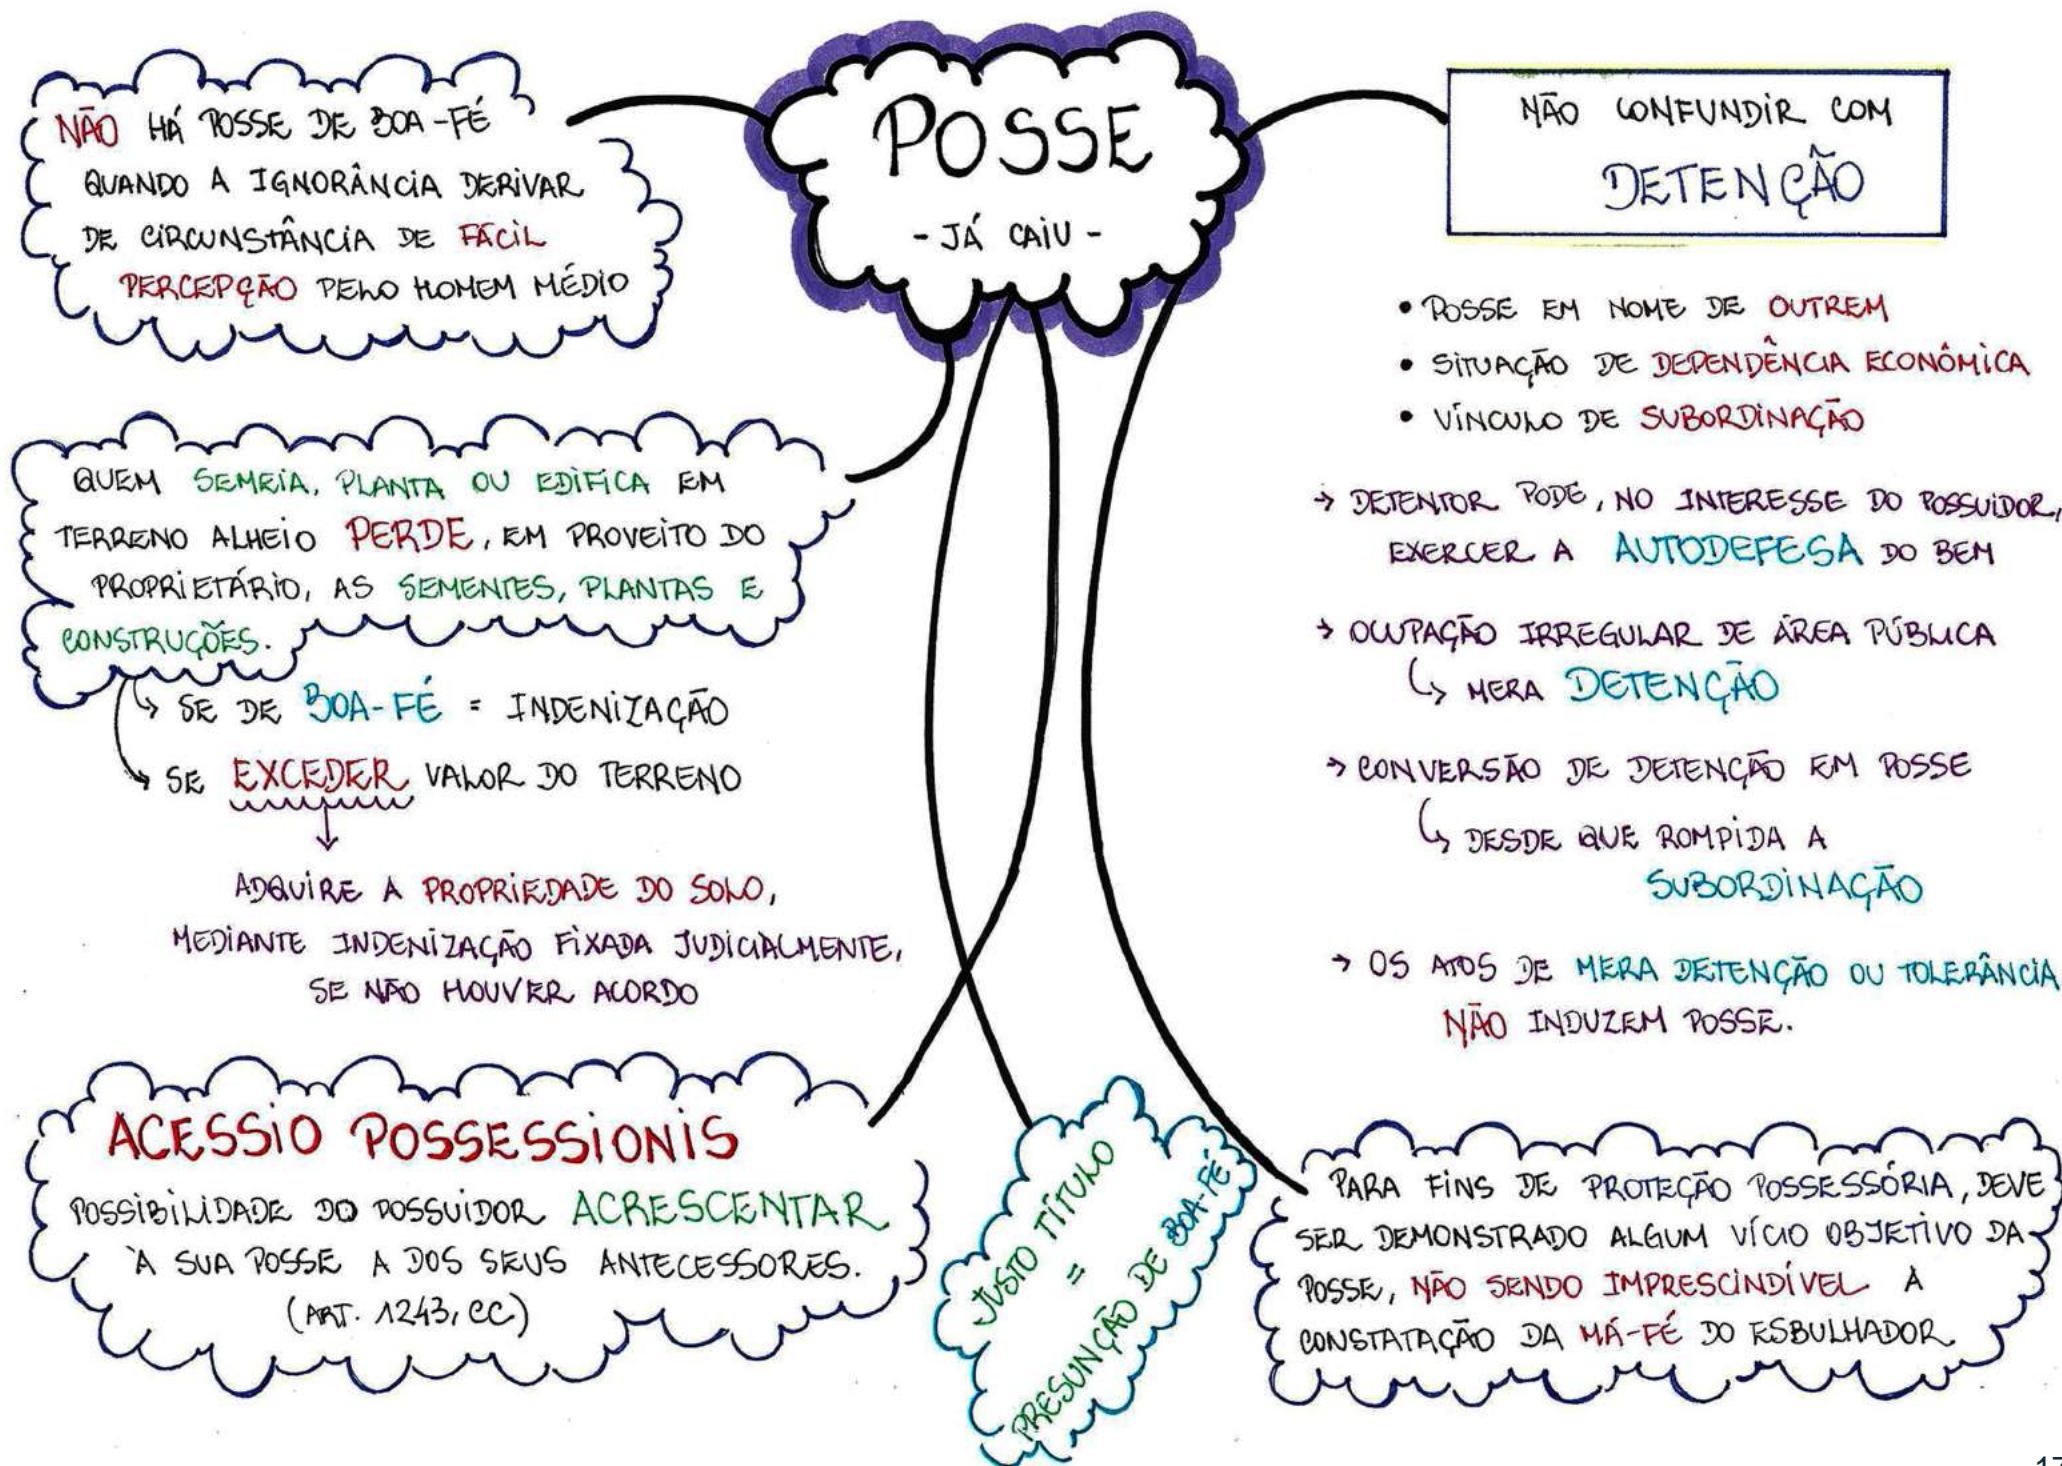 POSSE
- JÁ CAIU -
NÃO HÁ POSSE DE BOA-FÉ
QUANDO A IGNORÂNCIA DERIVAR
DE CIRCUNSTÂNCIA DE FÁCIL
PERCEPÇÃO PELO HOMEM MÉDIO
QUEM SEMEIA, PLANTA OU EDIFICA EM
TERRENO ALHEIO PERDE, EM PROVEITO DO
PROPRIETÁRIO, AS SEMENTES, PLANTAS E
CONSTRUÇÕES.
↳ SE DE BOA-FÉ = INDENIZAÇÃO
↳ SE EXCEDER VALOR DO TERRENO
↓
ADQUIRE A PROPRIEDADE DO SOLO,
MEDIANTE INDENIZAÇÃO FIXADA JUDICIALMENTE,
SE NÃO HOUVER ACORDO
ACESSIO POSSESSIONIS
POSSIBILIDADE DO POSSUIDOR ACRESCENTAR
À SUA POSSE A DOS SEUS ANTECESSORES.
(ART. 1243, CC)
JUSTO TÍTULO
=
PRESUNÇÃO DE BOA-FÉ
NÃO CONFUNDIR COM
DETENÇÃO
• POSSE EM NOME DE OUTREM
• SITUAÇÃO DE DEPENDÊNCIA ECONÔMICA
• VÍNCULO DE SUBORDINAÇÃO
→ DETENTOR PODE, NO INTERESSE DO POSSUIDOR,
EXERCER A AUTODEFESA DO BEM
→ OCUPAÇÃO IRREGULAR DE ÁREA PÚBLICA
↳ MERA DETENÇÃO
→ CONVERSÃO DE DETENÇÃO EM POSSE
↳ DESDE QUE ROMPIDA A
SUBORDINAÇÃO
→ OS ATOS DE MERA DETENÇÃO OU TOLERÂNCIA
NÃO INDUZEM POSSE.
PARA FINS DE PROTEÇÃO POSSESSÓRIA, DEVE
SER DEMONSTRADO ALGUM VÍCIO OBJETIVO DA
POSSE, NÃO SENDO IMPRESCINDÍVEL A
CONSTATAÇÃO DA MÁ-FÉ DO ESBULHADOR